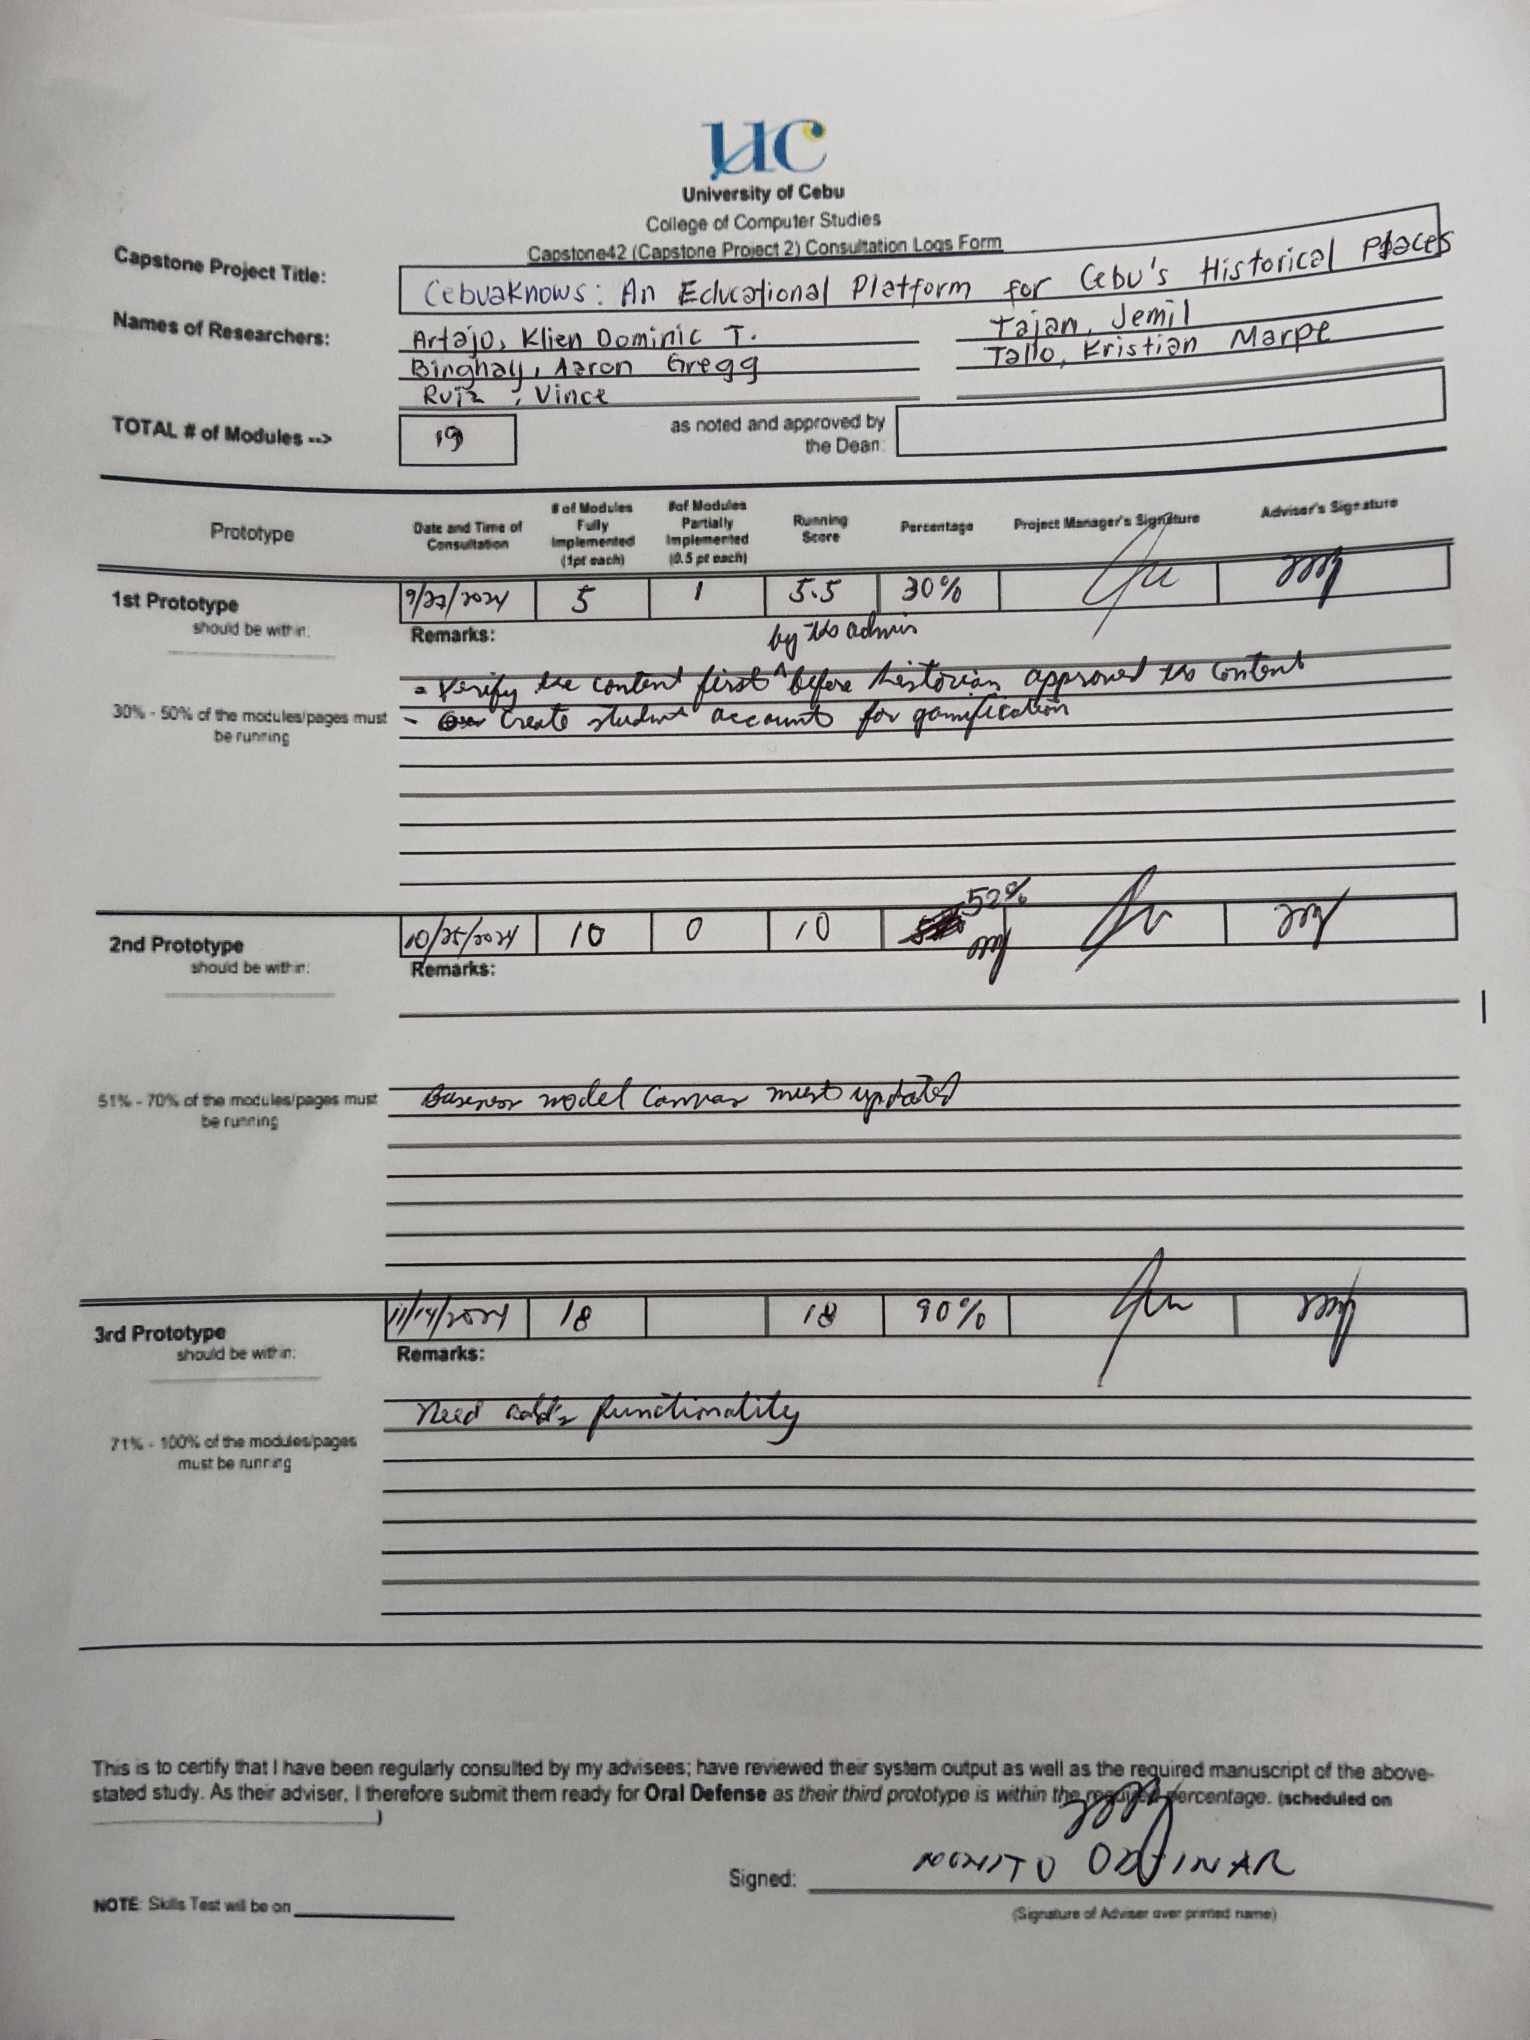 UC
University of Cebu
College of Computer Studies
Capstone42 (Capstone Project 2) Consultation Logs Form
Capstone Project Title:
CebuaKnows: An Educational Platform for Cebu's Historical Places
Names of Researchers:
Artajo, Klien Dominic T.
Tajan, Jemil
Binghay, Aaron Gregg
Tallo, Kristian Marpe
Ruiz, Vince
TOTAL # of Modules --> 19
as noted and approved by the Dean:
Prototype
Date and Time of Consultation
# of Modules Fully Implemented (1pt each)
#of Modules Partially Implemented (0.5 pt each)
Running Score
Percentage
Project Manager's Signature
Adviser's Signature
1st Prototype 9/22/2024 5 1 5.5 30%
should be within:
Remarks:
by the admin
- Verify the content first ^ before historian approved the content
30% - 50% of the modules/pages must be running
- Create student account for gamification
52%
2nd Prototype 10/25/2024 10 0 10
should be within:
Remarks:
51% - 70% of the modules/pages must be running
Business model Canvas must updated
3rd Prototype 11/14/2024 18 18 90%
should be within:
Remarks:
Need functionality
71% - 100% of the modules/pages must be running
This is to certify that I have been regularly consulted by my advisees; have reviewed their system output as well as the required manuscript of the above-
stated study. As their adviser, I therefore submit them ready for Oral Defense as their third prototype is within the required percentage. (scheduled on
)
Signed:
NOTE: Skills Test will be on
(Signature of Adviser over printed name)